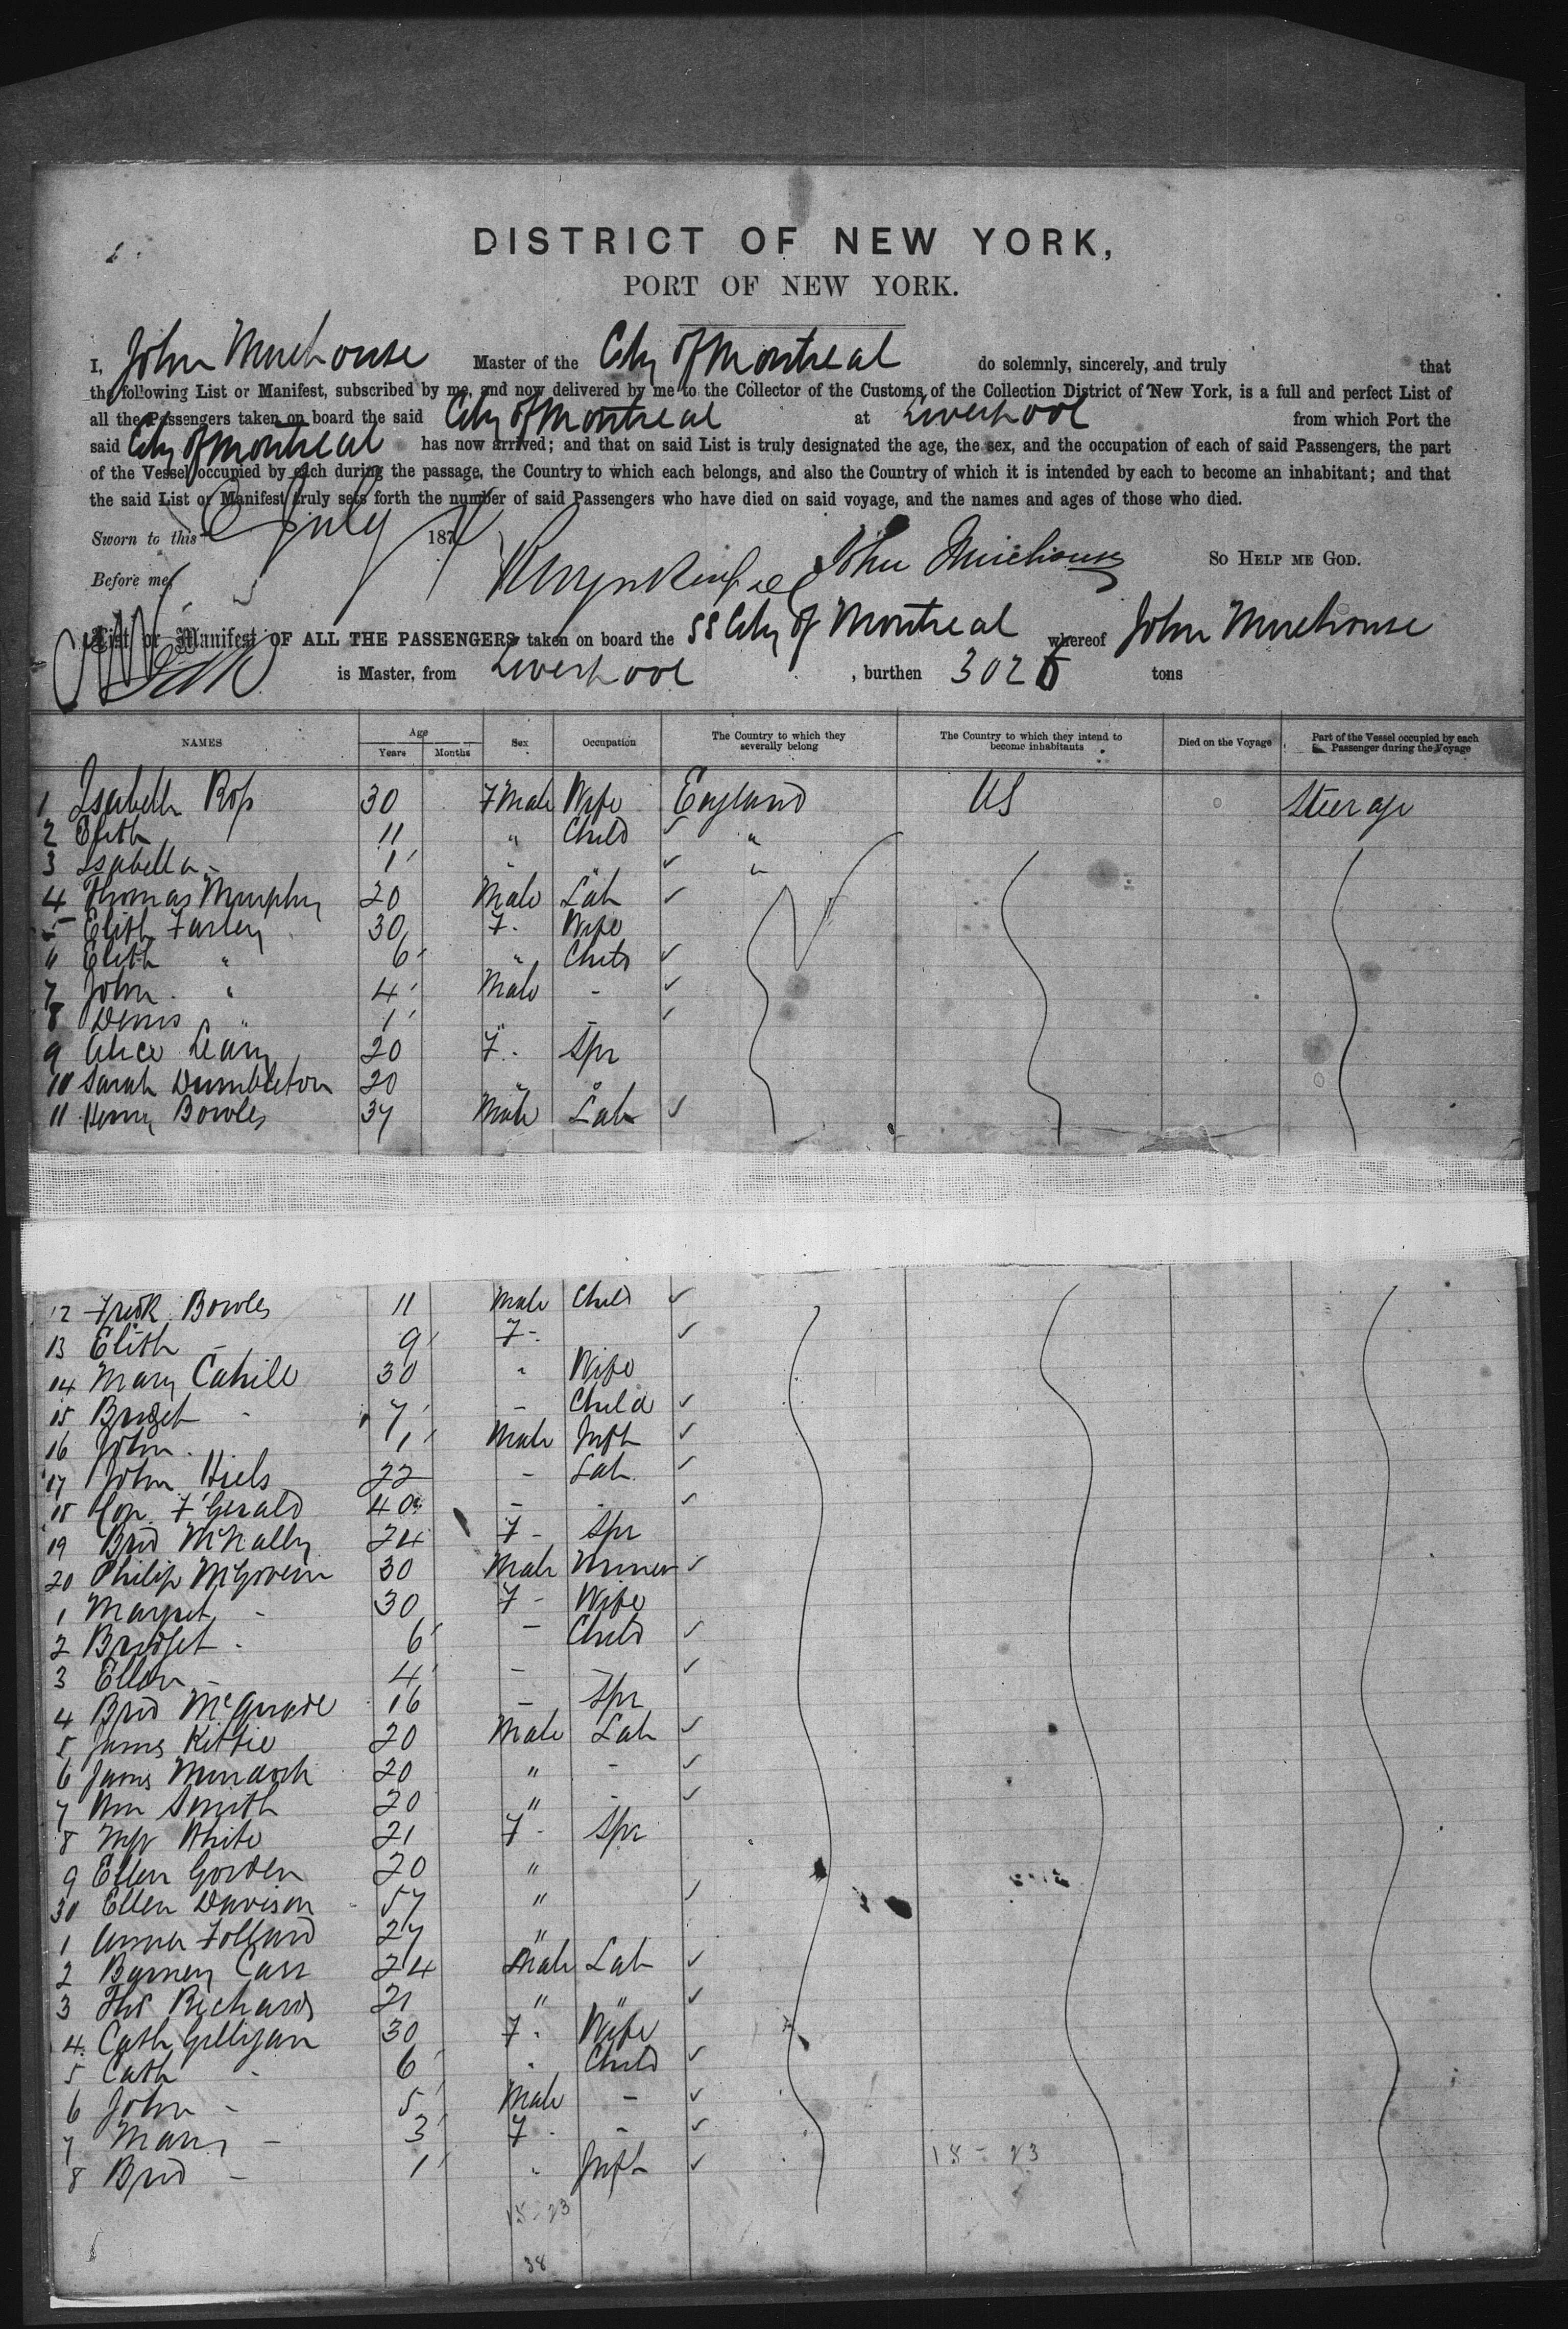 DISTRICT OF NEW YORK,
PORT OF NEW YORK.
I, John Mirehouse Master of the City of Montreal do solemnly, sincerely, and truly that
the following List or Manifest, subscribed by me, and now delivered by me to the Collector of the Customs of the Collection District of New York, is a full and perfect List of
all the Passengers taken on board the said City of Montreal at Liverpool from which Port the
said City of Montreal has now arrived; and that on said List is truly designated the age, the sex, and the occupation of each of said Passengers, the part
of the Vessel occupied by each during the passage, the Country to which each belongs, and also the Country of which it is intended by each to become an inhabitant; and that
the said List or Manifest truly sets forth the number of said Passengers who have died on said voyage, and the names and ages of those who died.
Sworn to this July 187
Before me, John Mirehouse SO HELP ME GOD.
List or Manifest OF ALL THE PASSENGERS taken on board the SS City of Montreal whereof John Mirehouse
is Master, from Liverpool, burthen 3026 tons
NAMES Age Years Months Sex Occupation The Country to which they severally belong The Country to which they intend to become inhabitants Died on the Voyage Part of the Vessel occupied by each Passenger during the Voyage
1 Isabella Ross 30 FMale Wife England US Steerage
2 Elizth 11 " Child "
3 Isabella - 1 " " "
4 Thomas Murphy 20 Male Lab
5 Elizth Farley 30 F. Wife
6 Elizth " 6 " Child
7 John " 4 Male -
8 Denis " 1 " -
9 Alice Leary 20 F. Spr
10 Sarah Dumbleton 20 " "
11 Henry Bowles 37 Male Lab
12 Fredk Bowles 11 Male Child
13 Elizth - 9 F -
14 Mary Cahill 30 " Wife
15 Bridget - 7 - Child
16 John 1 Male Inft
17 John Hiels 22 - Lab
18 F'Gerald 40 - -
19 Brid McNally 24 F - Spr
20 Philip McGovern 30 Male Miner
1 Margret - 30 F - Wife
2 Bridget - 6 - Child
3 Ellen - 4 - -
4 Brid 16 - Spr
5 James Kittie 20 Male Lab
6 James Murdoch 20 " -
7 Wm Smith 20 " -
8 White 21 F - Spr
9 Ellen Gorden 20 "
30 Ellen Davison 57 "
1 Anna Follard 27 "
2 Barney Carr 24 Male Lab
3 Thos Richards 21 " "
4 Cath Gilligan 30 F. Wife
5 Cath - 6 " Child
6 John - 5 Male -
7 Mary - 3 F - -
8 Brid - 1 " Inft
15 - 23
15 - 23
38